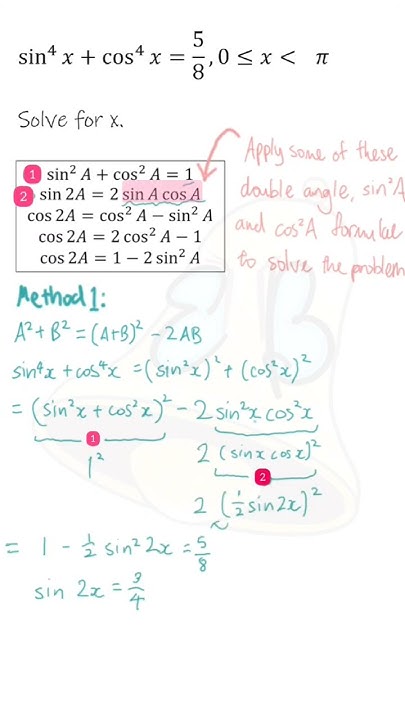 sin⁴ x + cos⁴ x = 5/8, 0 ≤ x < π
Solve for x.
1 sin² A + cos² A = 1
2 sin 2A = 2 sin A cos A
cos 2A = cos² A − sin² A
cos 2A = 2 cos² A − 1
cos 2A = 1 − 2 sin² A
Apply some of these
double angle, sin²A
and cos²A formulae
to solve the problem
Method 1:
A² + B² = (A+B)² − 2AB
sin⁴x + cos⁴x = (sin²x)² + (cos²x)²
= (sin²x + cos²x)² − 2 sin²x cos²x
1
1²
2 (sinx cosx)²
2
2 (½ sin2x)²
= 1 − ½ sin² 2x = 5/8
sin 2x = 3/4